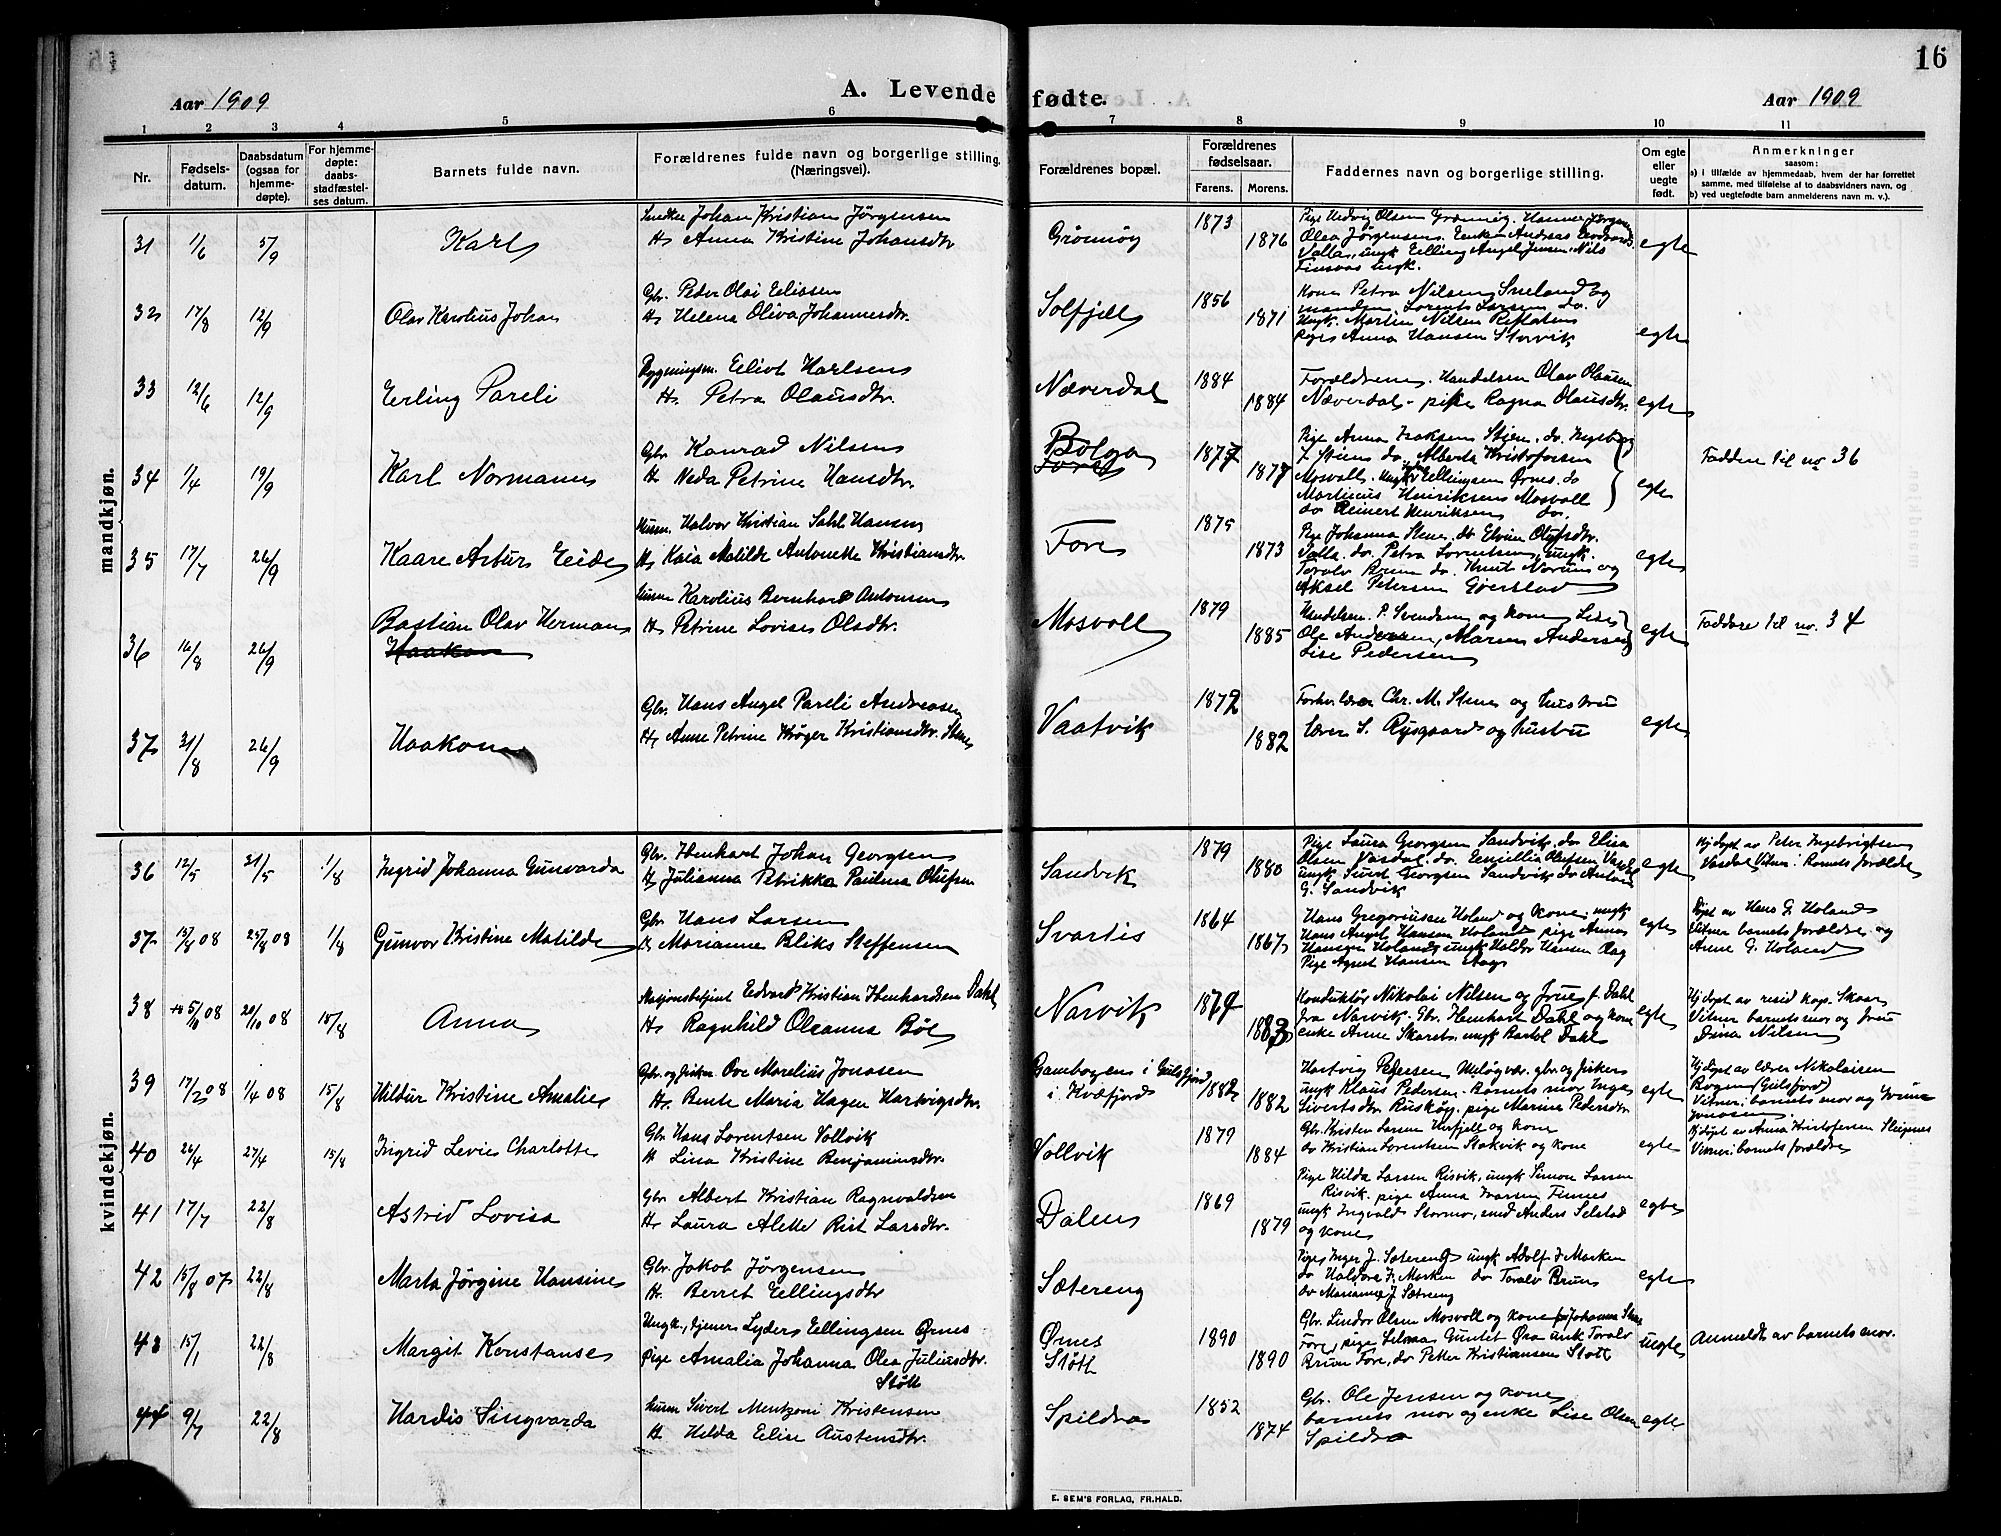 16
Aar 1909
A. Levende fødte.
Aar 1909
1 2 3 4 5 6 7 8 9 10 11
Nr.
Fødsels-
datum.
Daabsdatum
(ogsaa for
hjemme-
døpte).
For hjemme-
døpte:
daabs-
stadfæstel-
ses datum.
Barnets fulde navn.
Forældrenes fulde navn og borgerlige stilling.
(Næringsvei).
Forældrenes bopæl.
Forældrenes
fødselsaar.
Farens. Morens.
Faddernes navn og borgerlige stilling.
Om egte
eller
uegte
født.
Anmerkninger
saasom:
a) i tilfælde av hjemmedaab, hvem der har forrettet
samme, med tilføielse af to daabsvidners navn, og
b) ved uegtefødte barn anmelderens navn m. v.).
mandkjøn.
31 1/6 5/9 Karl
Johan Kristian Jørgensen
H. Anna Kristine Johansdtr
Grønnøy 1873 1876
Pige Hedvig Olsen Grønnøy. Hanna Jørgensen
Olea Jørgensen. Enke Andreas
Valla, ungk Elling Angel Jensen. Nils
Finsaas ungk.
egte
32 17/8 12/9 Olav Karolius Johan
Gbr. Peder Olai Eliassen
H. Helena Oliva Johannesdtr.
Solfjell 1856 1871
Kone Petra Nilsen Sneland og
manden Lorents Larsen do.
Ungk. Martin Nilsen Reflaten
Piges Anna Hansen Storvik
egte
33 12/6 12/9 Erling Pareli
Bygningsm. Eliot Karlsen
H. Petra Olausdtr.
Næverdal 1884 1884
Forældrene. Handelsm Olav Olausen
Næverdal - pike Ragna Olausdtr.
egte
34 1/4 19/9 Karl Normann
Gbr. Konrad Nilsen
H. Neda Petrine Hansdtr.
Bolga
Fores
1877 1878
Pige Anna Isaksen Stien. do. Ingeborg
J. Stien do. Alberta Kristofersen
Mosvoll. Ungk Ellingsen Ørnes. do
Martinus Henriksen Mosvoll
do Reinert Henriksen do.
egte
Faddere til no 36
35 17/7 26/9 Kaare Artur Eide
Husm. Halvor Kristian Sahl Hansen
H. Kaia Matilde Antonette Kristiansdtr
Fore 1875 1873
Pige Johanna Stene. dt Elvine Olufsdtr.
Valla. do. Petra Lorentsen, ungk.
Toralv Bruun do. Knut Norum og
Aksel Petersen Gjerstad
egte
36 16/8 26/9 Bastian Olav Herman
Haakon
Husm Karolius Bernhard Antonsen
H. Petrine Lovise Olsdtr.
Mosvoll 1879 1885
Handelsm. P. Svendsen og kone Lise
Ole Andersen, Maren Andersen
Lise Pedersen
egte
Faddere til no. 34
37 31/8 26/9 Haakon
Gbr. Hans Angel Pareli Andreasen
H. Anne Petrine Krøger Kristiansdtr. Stene
Vaatvik 1872 1882
Forhv lærer Chr. M. Stene og hustru
Lærer S. Rysgaard og hustru
egte
kvindekjøn.
36 12/5 31/5 1/8 Ingrid Johanna Gunvarda
Gbr. Ebenhart Johan Georgsen
H. Julianna Petrikka Paulina Olufsen
Sandvik 1879 1880
Pige Laura Georgsen Sandvik, do Elisa
Olsen Vasdal, do. Emillia Olufsen Vasdal
ungk Sivert Georgsen Sandvik do Anton
G. Sandvik
egte
Hj.døpt av Peter Ingebrigtsen
Vasdal. Vitner: Barnets forældre
37 13/8 08 25/8 08 1/8 Gunvor Kristine Matilde
Gbr. Hans Larsen
H. Marianne Bliks Steffensen
Svartis 1864 1867
Hans Gregoriussen Holand og kone, ungk
Hans Angel Hansen Holand pige Anna
Hansen Holand, ungk Haldor Hansen Aag
Pige Agnet Hansen Aag
egte
Døpt av Hans G. Holand
Vitner barnets forældre og
Anne G. Holand
38 5/10 08 20/10 08 15/8 Anna
Stasjonsbetjent Edvard Kristian Ebenhardsen Dahl
H. Ragnhild Oleanna Bøe
Narvik 1874 1883
Konduktør Nikolai Nilsen og frue f. Dahl
fra Narvik. Gbr. Ebenhart Dahl og kone
enke Anne Skarets. ungk Bartol Dahl
egte
Hj.døpt av resid kap. Skaar
Vitner barnets mor og frue
Dina Nilsen
39 17/2 08 1/4 08 15/8 Hildur Kristine Amalie
Gbr. og fisker Ove Marelius Jonasen
H. Bente Maria Hagen Hartvigsdtr.
Gambogen i Gulsfjord
i Kvæfjord
1882 1882
Hartvig Pedersen Meløyvær. gbr. og fiskers
ungk Klaus Pedersen. Barnets mor Inga
Sivertsdtr Ruskøy. pige Marine Pedersdtr
egte
Hj.døpt av lærer Nikolaisen
Bogen (Gulsfjord)
Vitner: barnets mor og Irene
Jonasen.
40 26/4 27/4 15/8 Ingrid Levise Charlotte
Gbr. Hans Lorentsen Vollvik
H. Lina Kristine Benjaminsdtr.
Vollvik 1879 1884
Gbr. Kristen Larsen Herfjell og kone
do Kristian Lorentsen Stokvik og kone
egte
Hj.døpt av Anna Kristofersen Skignes
Vitner: barnets forældre
41 17/7 22/8 Astrid Lovisa
Gbr. Albert Kristian Ragnvaldsen
H. Laura Alette Rist Larsdtr.
Dalen 1869 1879
Pige Hilda Larsen Risvik, ungk Simon Larsen
Risvik. pige Anna Ivarsen Finnes
ungk Ingvald Stormo, smed Anders Selstad
og kone
egte
42 15/8 07 22/8 Marta Jørgine Hansine
Gbr. Jakob Jørgensen
H. Berret Ellingsdtr
Sætereng
Piges Inger J. Sætereng ungk Adolf J. Marken
do Haldora J. Marken do Toralv Bruun
do Marianne J. Sætreng
egte
43 15/1 22/8 Margit Konstanse
Ungk., tjener Lyder Ellingsen Ørnes
Pige Amalia Johanna Olea Juliusdtr.
Støtt
Ørnes
Støtt
1890 1890
Gbr. Lindor Olsen Mosvoll og kone, Johanna Stene
Fore, pige Selma Guntet Øra unk Toralv
Bruun Fore, do Petter Kristiansen Støtt
uegte
Anmeldt av barnets mor.
44 9/7 22/8 Hardis Singvarda
husm Sivert Mentzoni Kristensen
H. Hilda Elise Austensdtr.
Spildra 1852 1874
Gbr. Ole Jensen og kone
barnets mor og enke Lise Olsen
Spildra
egte
E. SEM'S FORLAG, FR.HALD.